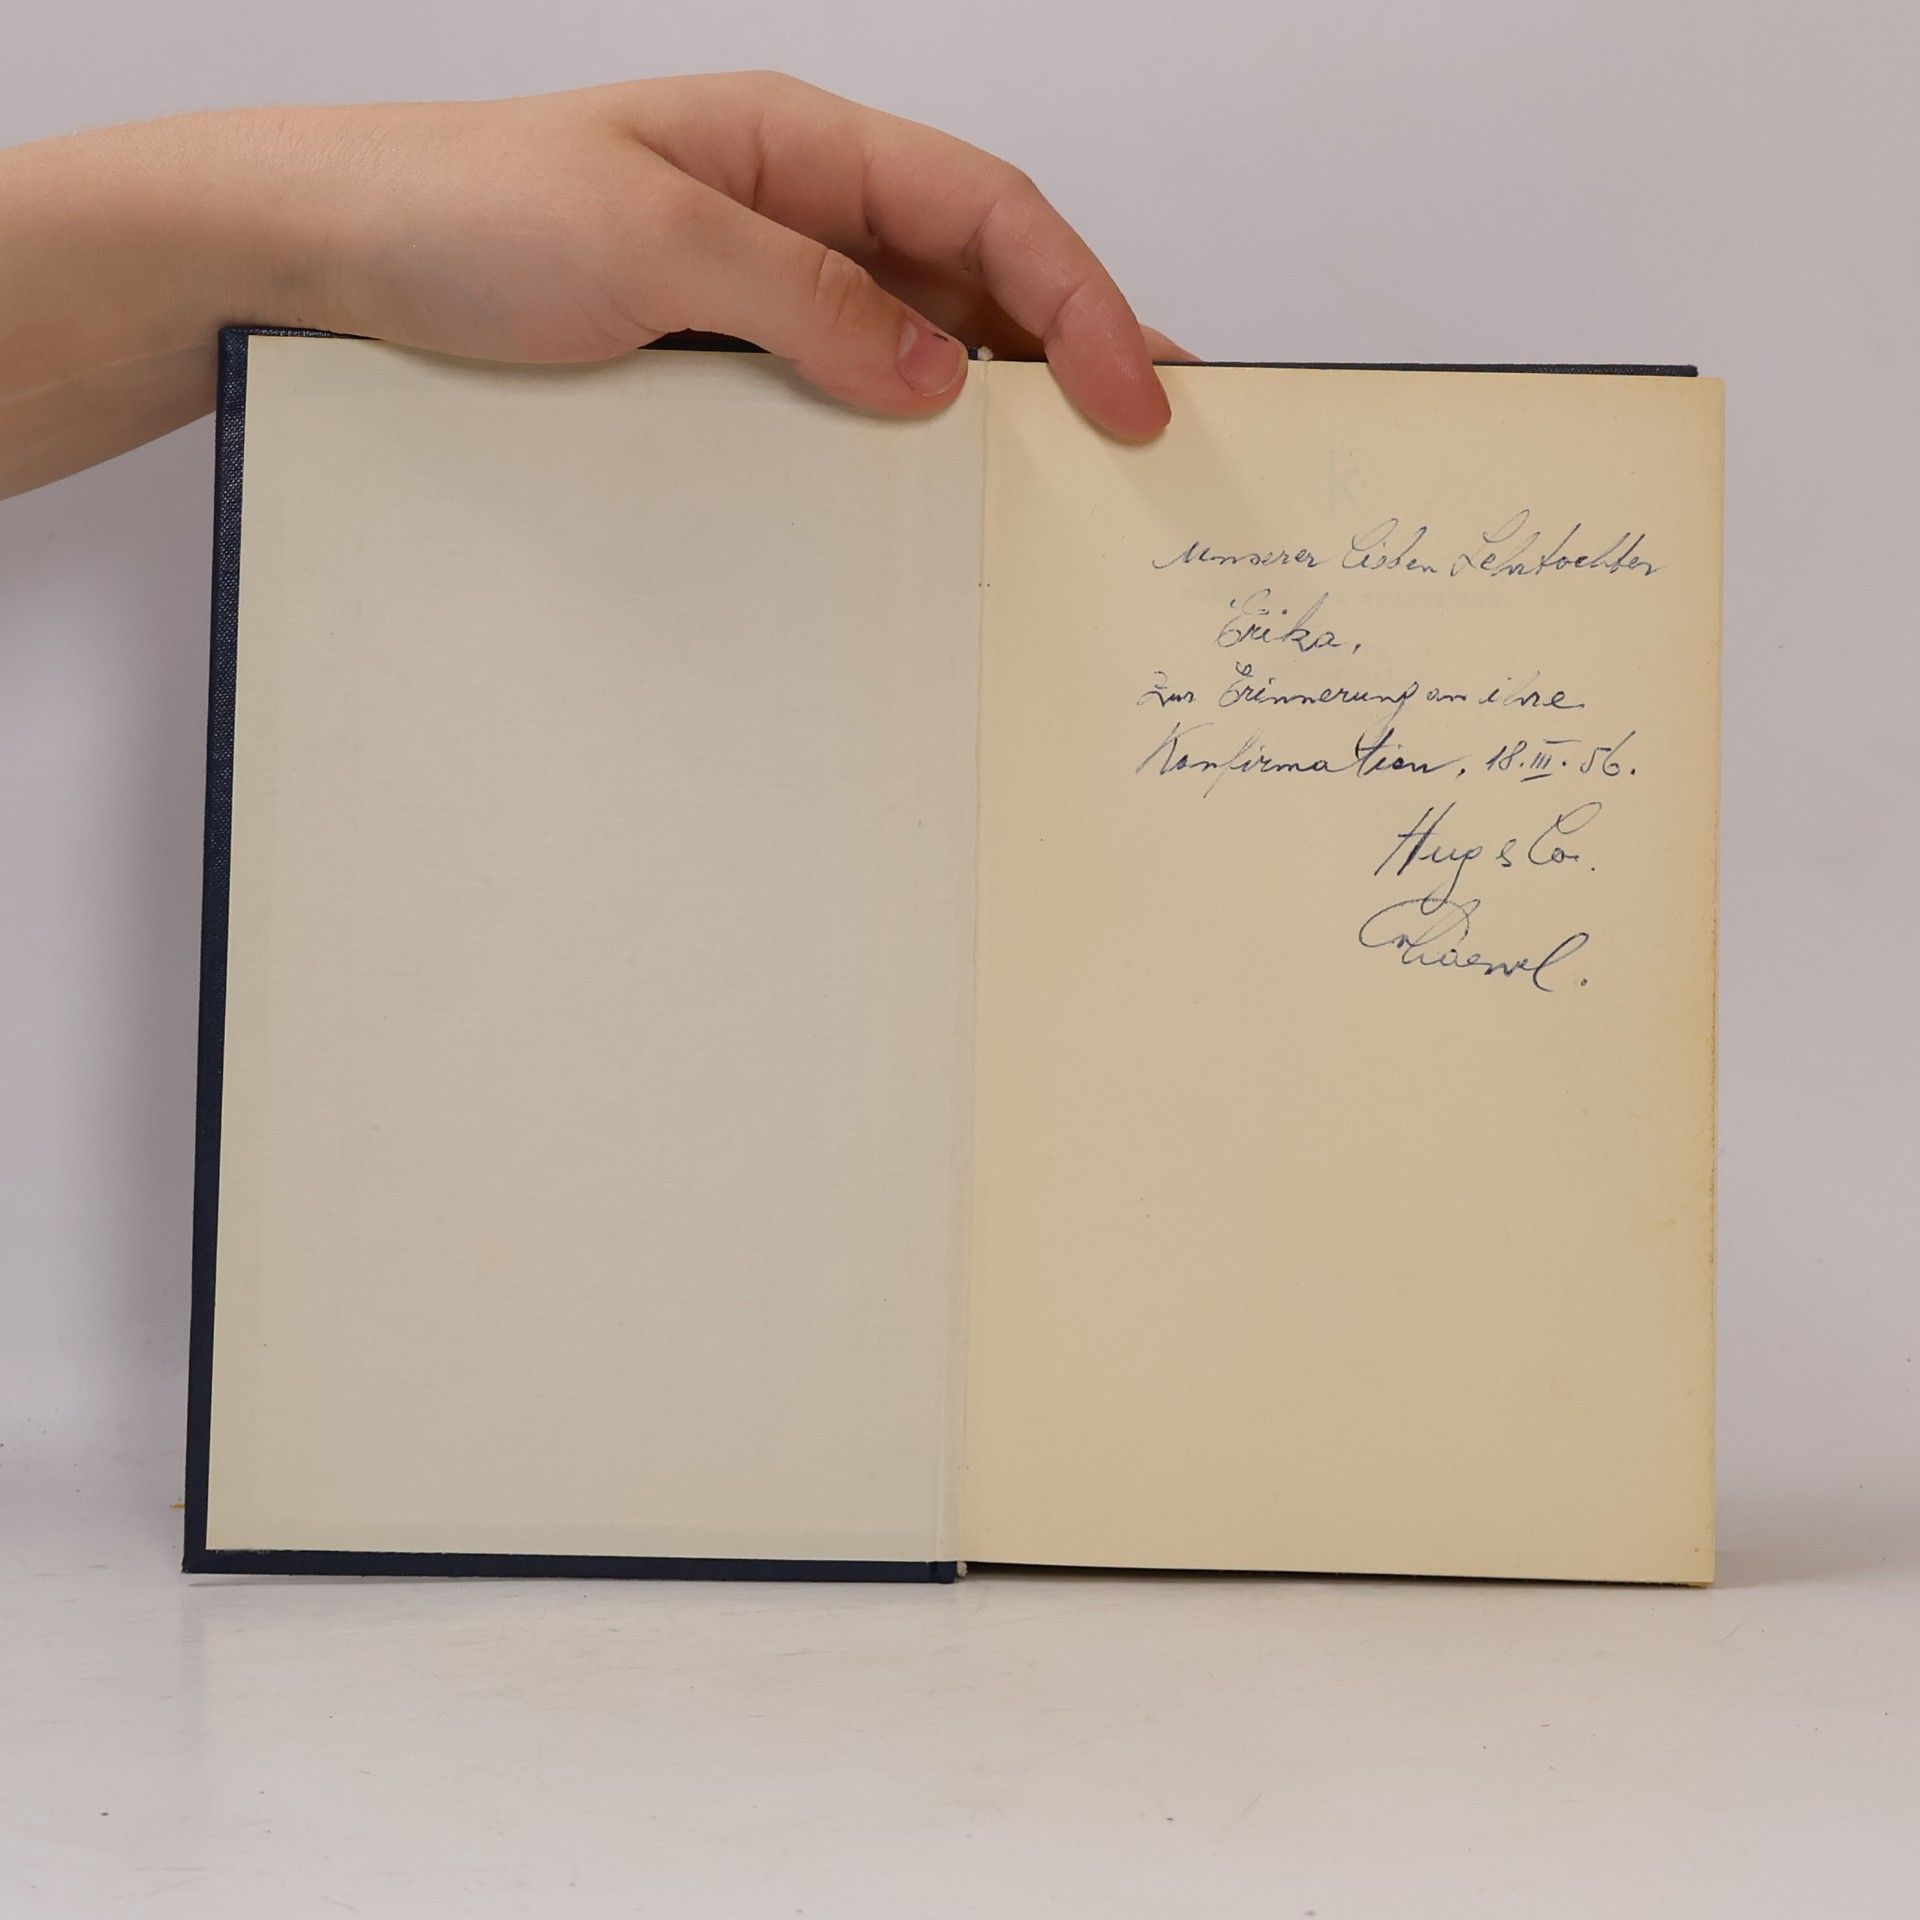 unserer lieben Lehrtochter
Erika,
Zur Erinnerung an ihre
Konfirmation, 18.III.56.
Hug & Co.